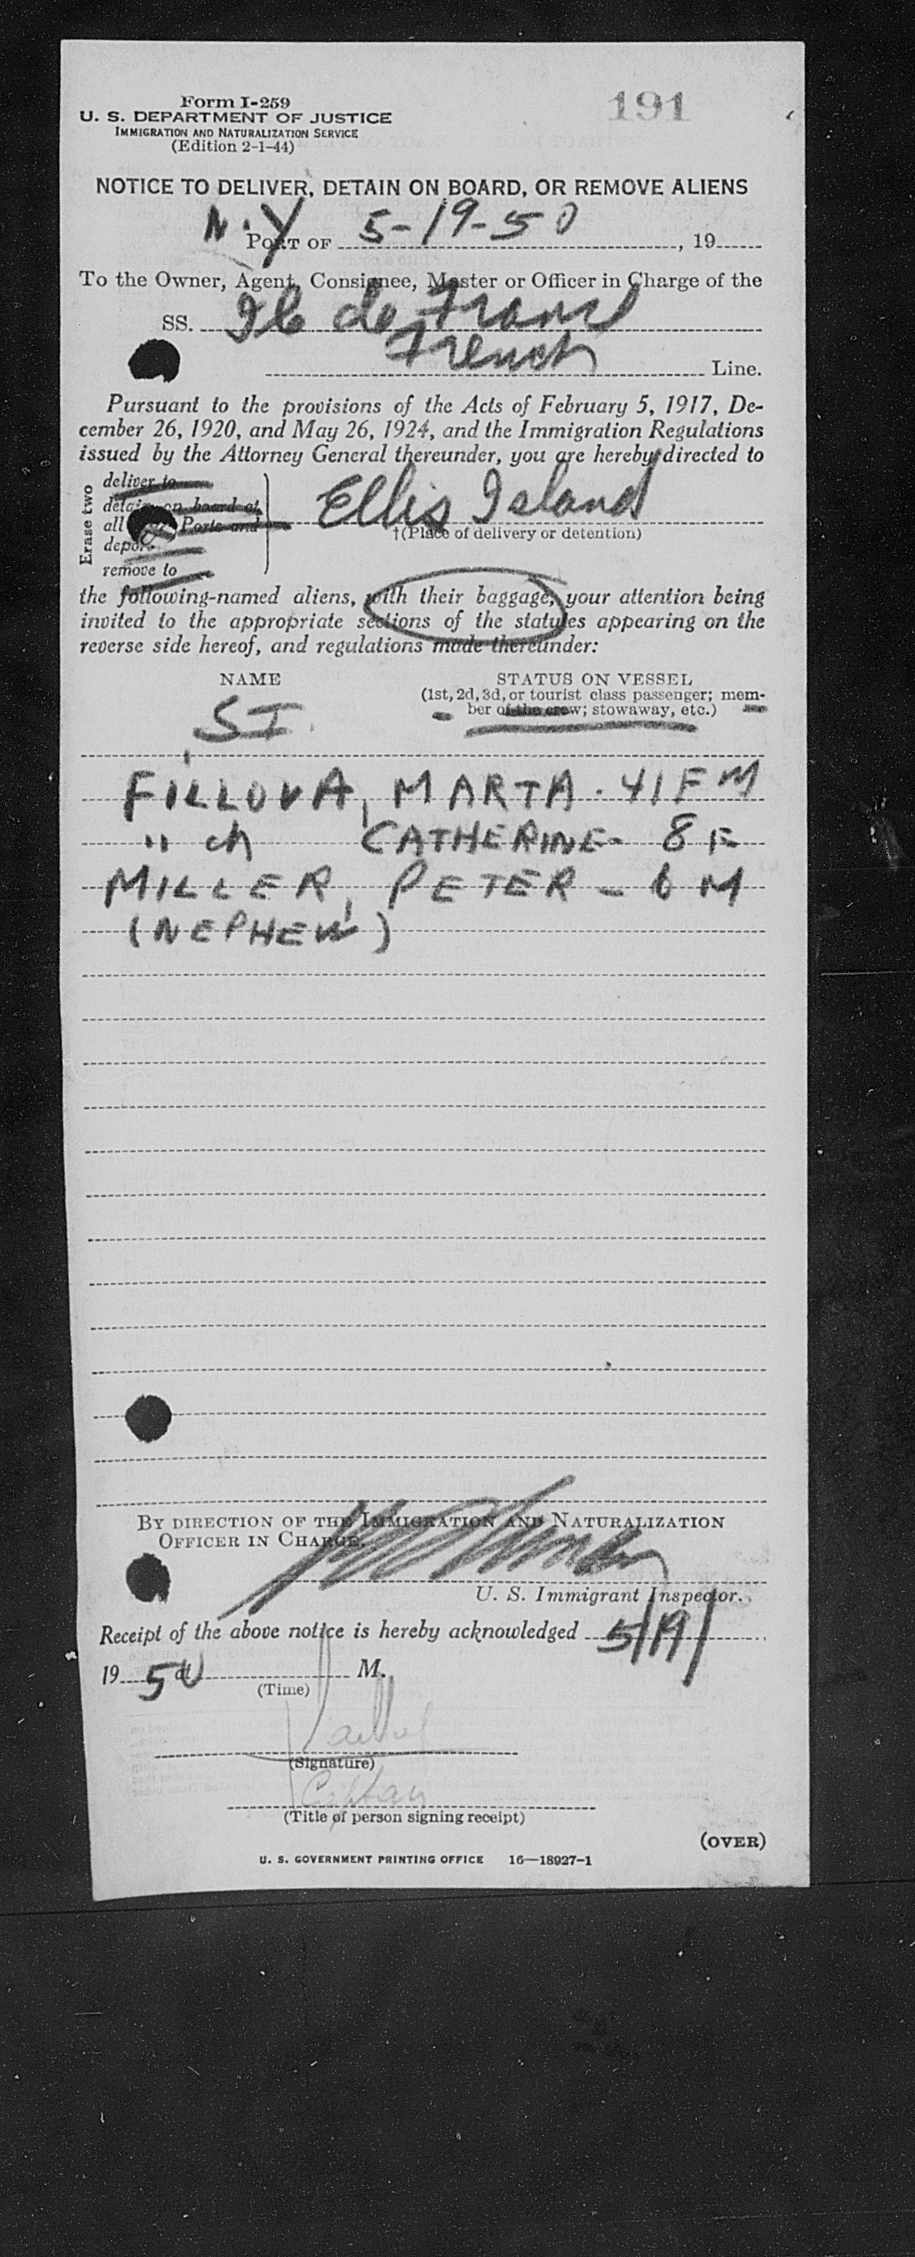 191
Form I-259
U. S. DEPARTMENT OF JUSTICE
IMMIGRATION AND NATURALIZATION SERVICE
(Edition 2-1-44)
NOTICE TO DELIVER, DETAIN ON BOARD, OR REMOVE ALIENS
N.Y 5-19-50
PORT OF , 19
To the Owner, Agent, Consignee, Master or Officer in Charge of the
SS. Ile de France
French Line.
Pursuant to the provisions of the Acts of February 5, 1917, De-
cember 26, 1920, and May 26, 1924, and the Immigration Regulations
issued by the Attorney General thereunder, you are hereby directed to
Erase two
deliver to
detain on board at
all Ports and
remove to
Ellis Island
†(Place of delivery or detention)
the following-named aliens, with their baggage, your attention being
invited to the appropriate sections of the statutes appearing on the
reverse side hereof, and regulations made thereunder:
NAME STATUS ON VESSEL
(1st, 2d, 3d, or tourist class passenger; mem-
ber of the crew; stowaway, etc.)
SI
FILLOVA, MARTA - 41 F M
" ch CATHERINE - 8 F
MILLER, PETER - 6 M
(NEPHEW)
BY DIRECTION OF THE IMMIGRATION AND NATURALIZATION
OFFICER IN CHARGE.
U. S. Immigrant Inspector.
Receipt of the above notice is hereby acknowledged 5/19/
1950 at M.
(Time)
(Signature)
(Title of person signing receipt)
(OVER)
U. S. GOVERNMENT PRINTING OFFICE 16—18927-1